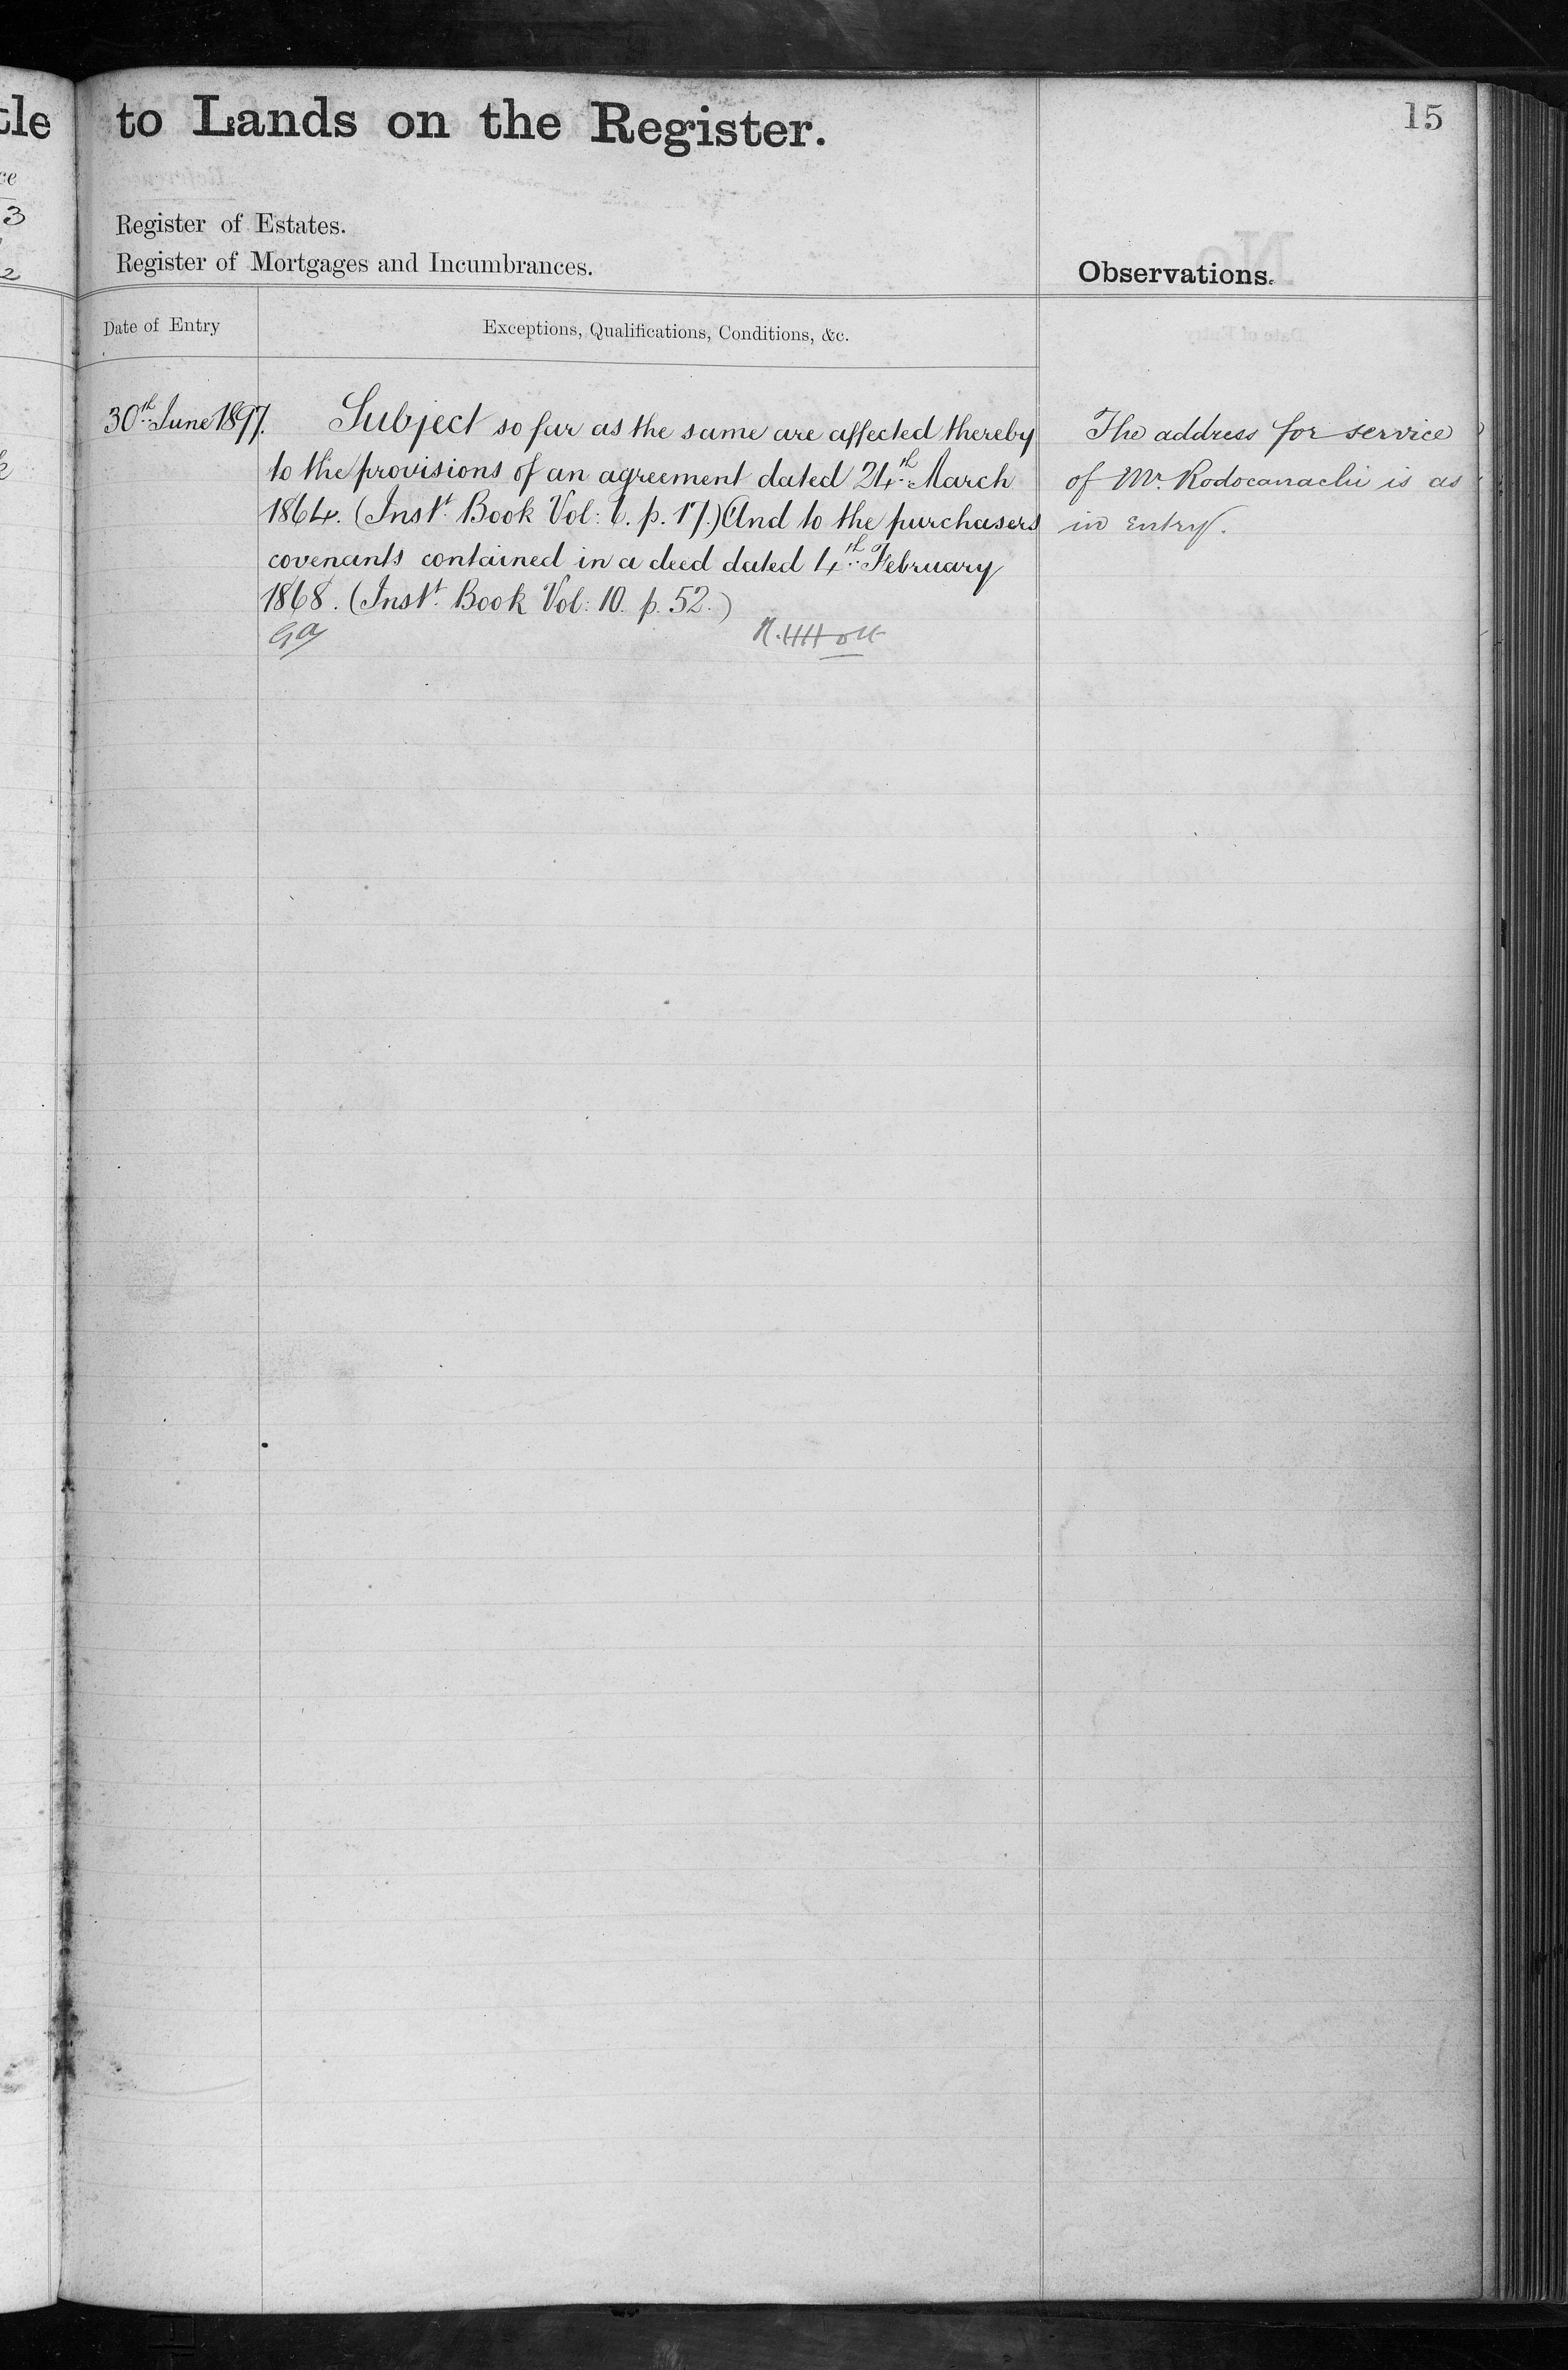 tle
to Lands on the Register.
15
ce
3
2
Register of Estates.
Register of Mortgages and Incumbrances.
Observations.
Date of Entry
Exceptions, Qualifications, Conditions, &c.
30th June 1897.
Subject so far as the same are affected thereby
to the provisions of an agreement dated 24th March
1864. (Inst. Book Vol: 1. p. 17.) And to the purchasers
covenants contained in a deed dated 4th February
1868. (Inst. Book Vol: 10. p. 52.)
The address for service
of Mr. Rodocanachi is as
in Entry.